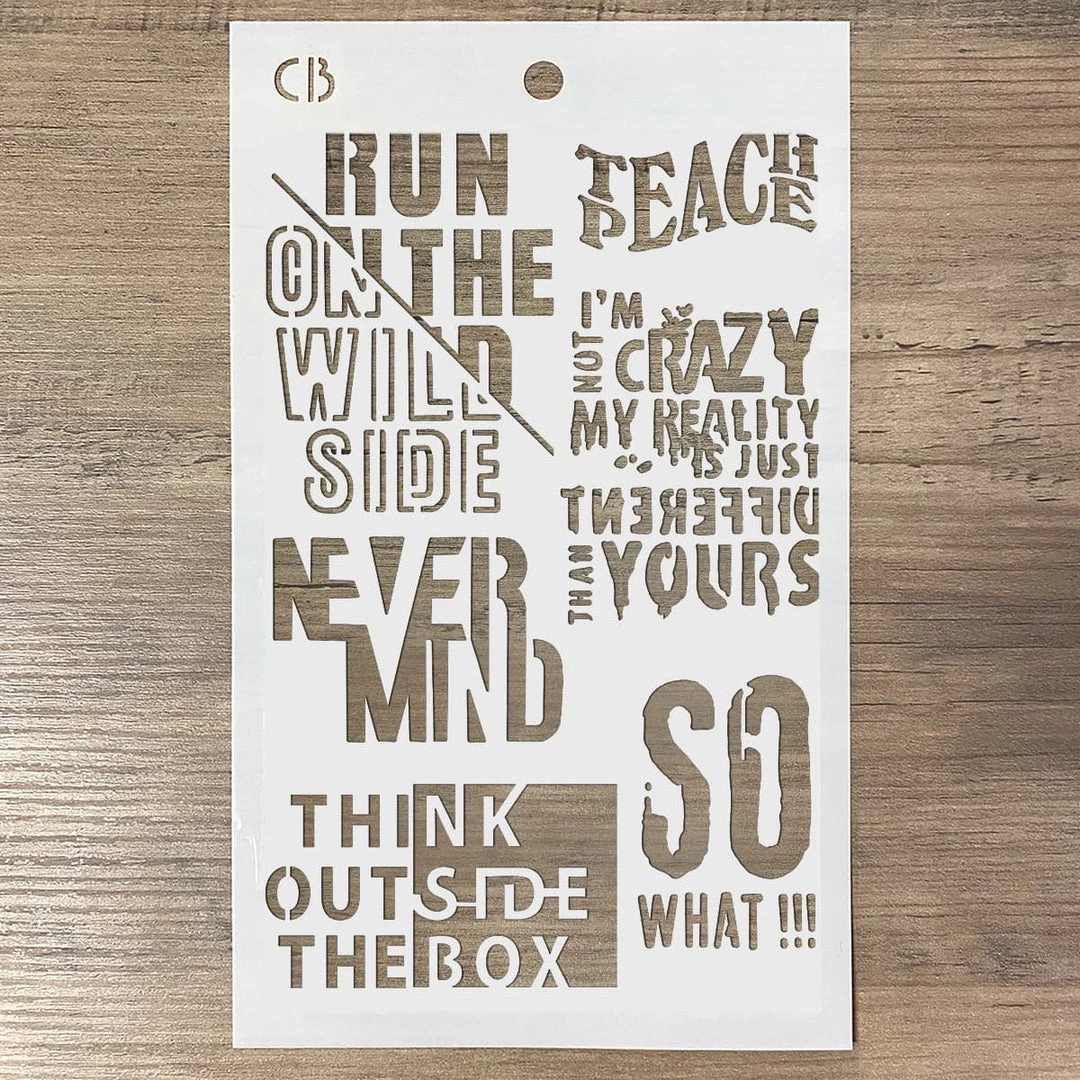 CB
RUN
ON THE
WILD
SIDE
TEACH
PEACE
I'M
NOT CRAZY
MY REALITY
IS JUST
DIFFERENT
THAN YOURS
NEVER
MIND
SO
WHAT !!!
THINK
OUTSIDE
THE BOX